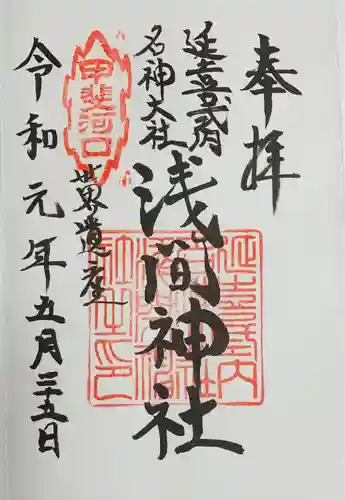 奉拝
延喜式内
名神大社
浅間神社
甲斐河口
世界遺産
令和元年五月二十五日